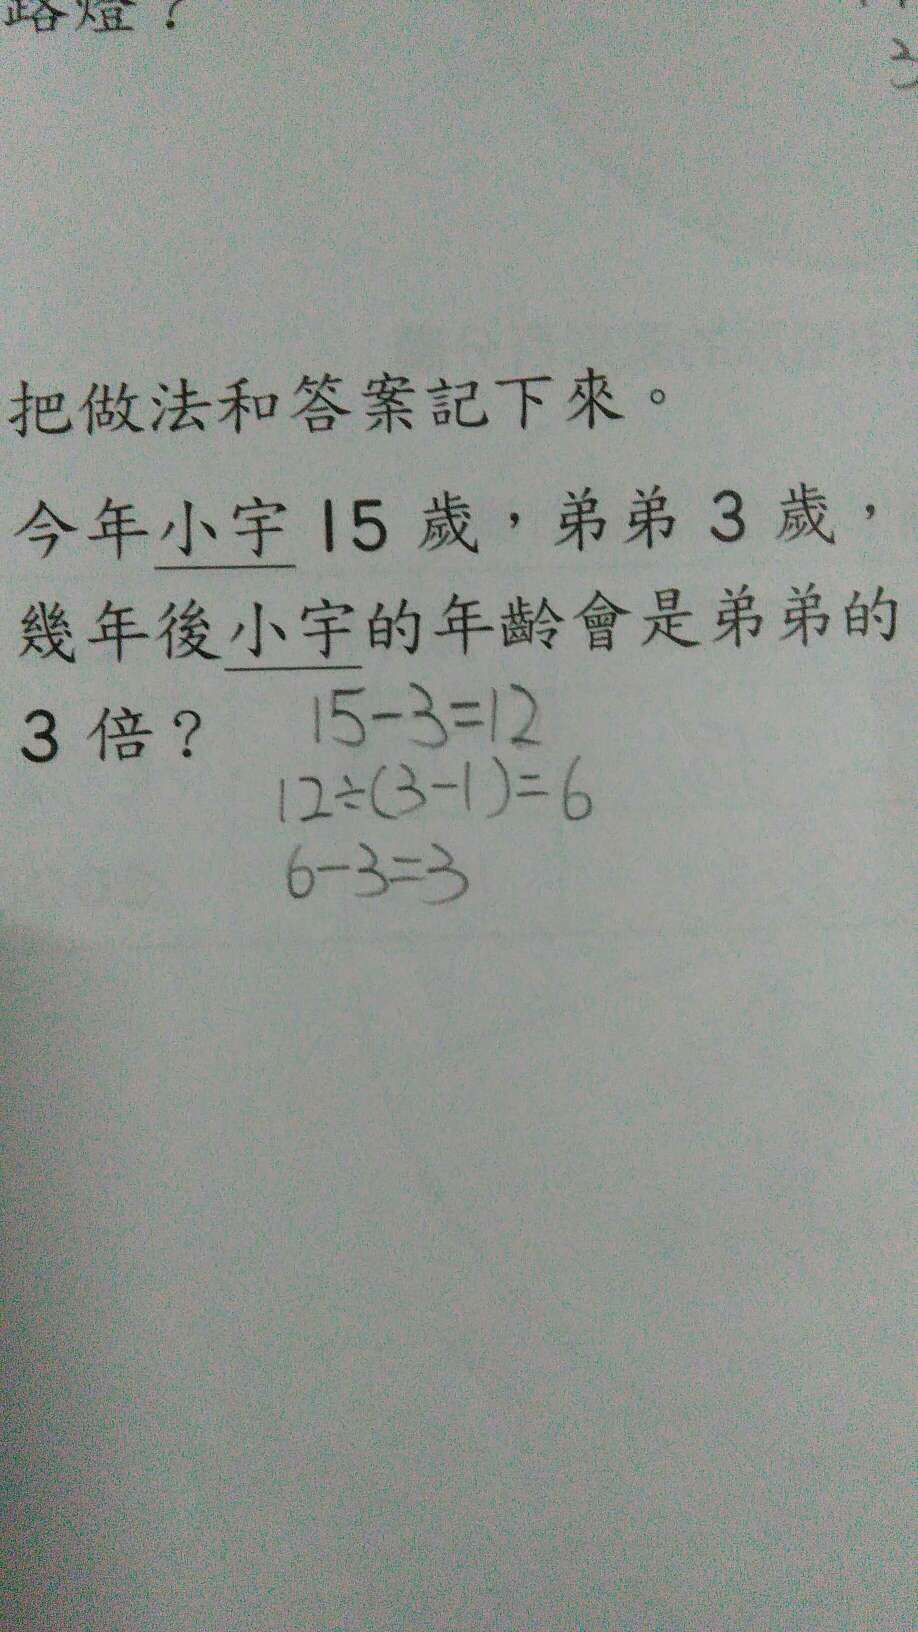 路燈？
把做法和答案記下來。
今年小宇 15 歲，弟弟 3 歲，
幾年後小宇的年齡會是弟弟的
3 倍？
15-3=12
12÷(3-1)=6
6-3=3